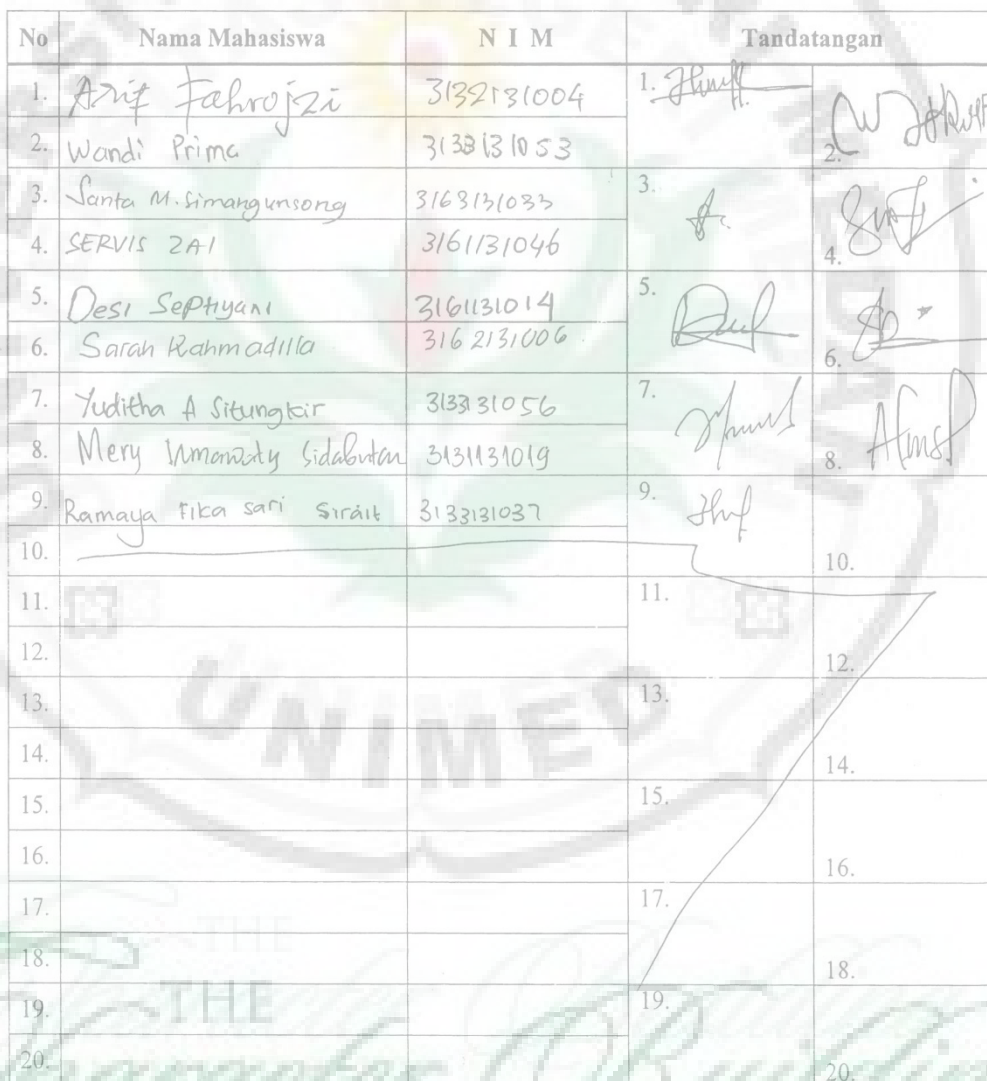 No Nama Mahasiswa N I M Tandatangan
1. Arif Fahrojzi 3132131004 1.
2. Wandi Prima 3133131053 2.
3. Santa M. Simangunsong 3163131033 3.
4. SERVIS ZAI 3161131046 4.
5. Desi Septiyani 3161131014 5.
6. Sarah Rahmadilla 3162131006 6.
7. Yuditha A Situngkir 313331056 7.
8. Mery Sidabutar 3131131019 8.
9. Ramaya Fika sari Sirait 3133131037 9.
10. 10.
11. 11.
12. 12.
13. 13.
14. 14.
15. 15.
16. 16.
17. 17.
18. 18.
19. 19.
20. 20.
UNIMED
THE